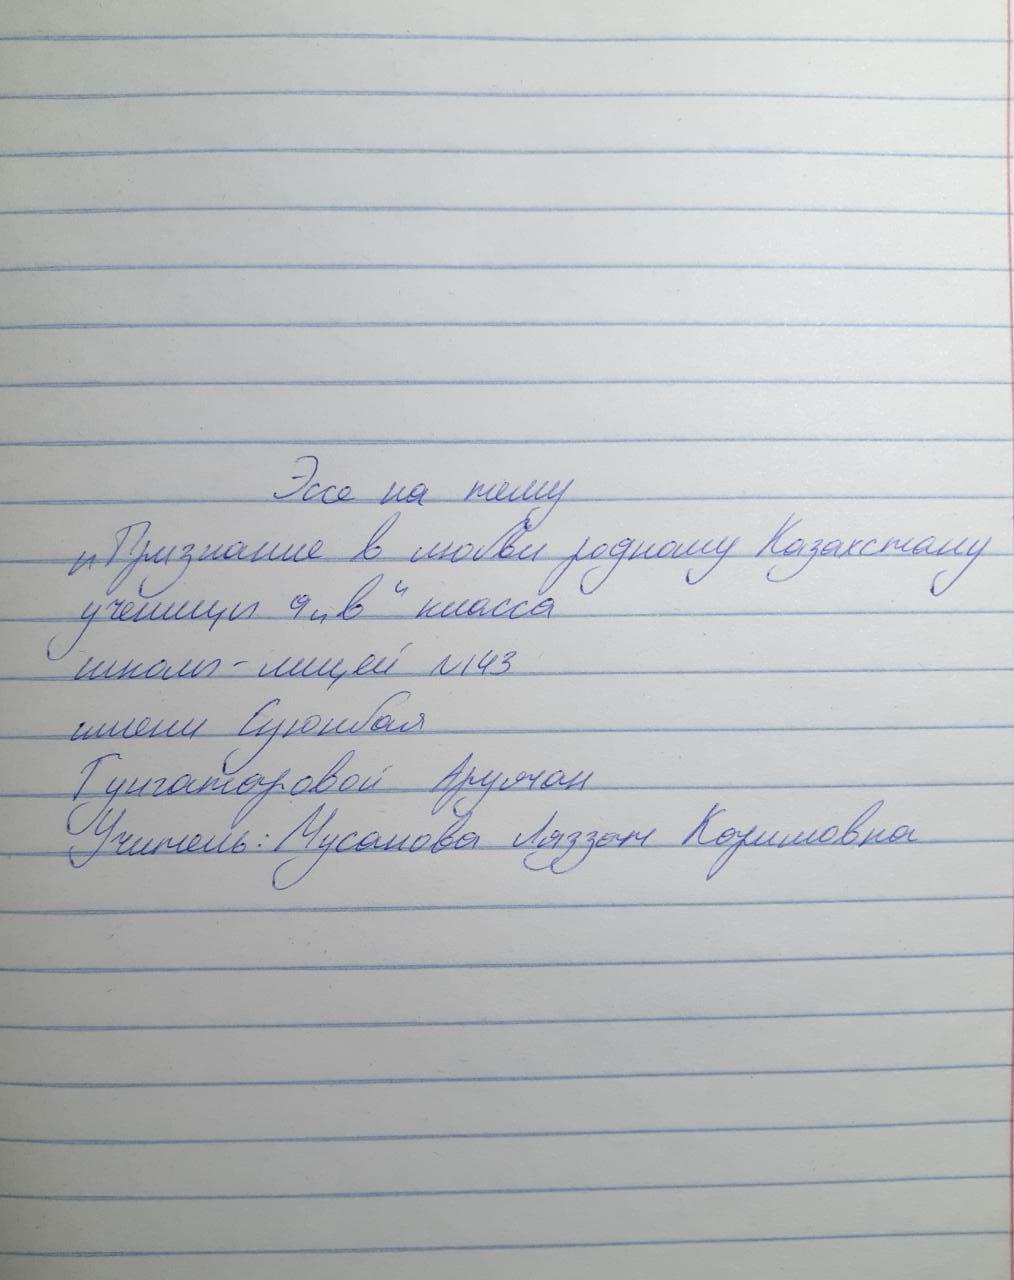 Эссе на тему
„Признание в любви родному Казахстану
ученицы 9 „в“ класса
школы-лицей №143
имени Суюнбая
Тунгатаровой Аружан
Учитель: Мусанова Ляззат Каримовна